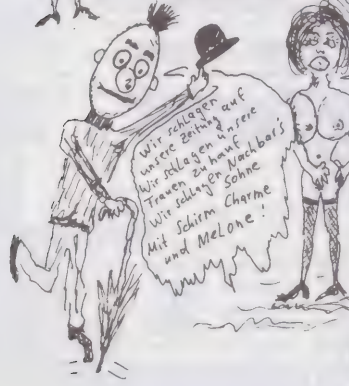 Wir schlagen auf
unsere Zeitung
Wir schlagen unsere
Frauen zuhauf
Wir schlagen Nachbar's
Söhne
Mit Schirm Charme
und Melone!